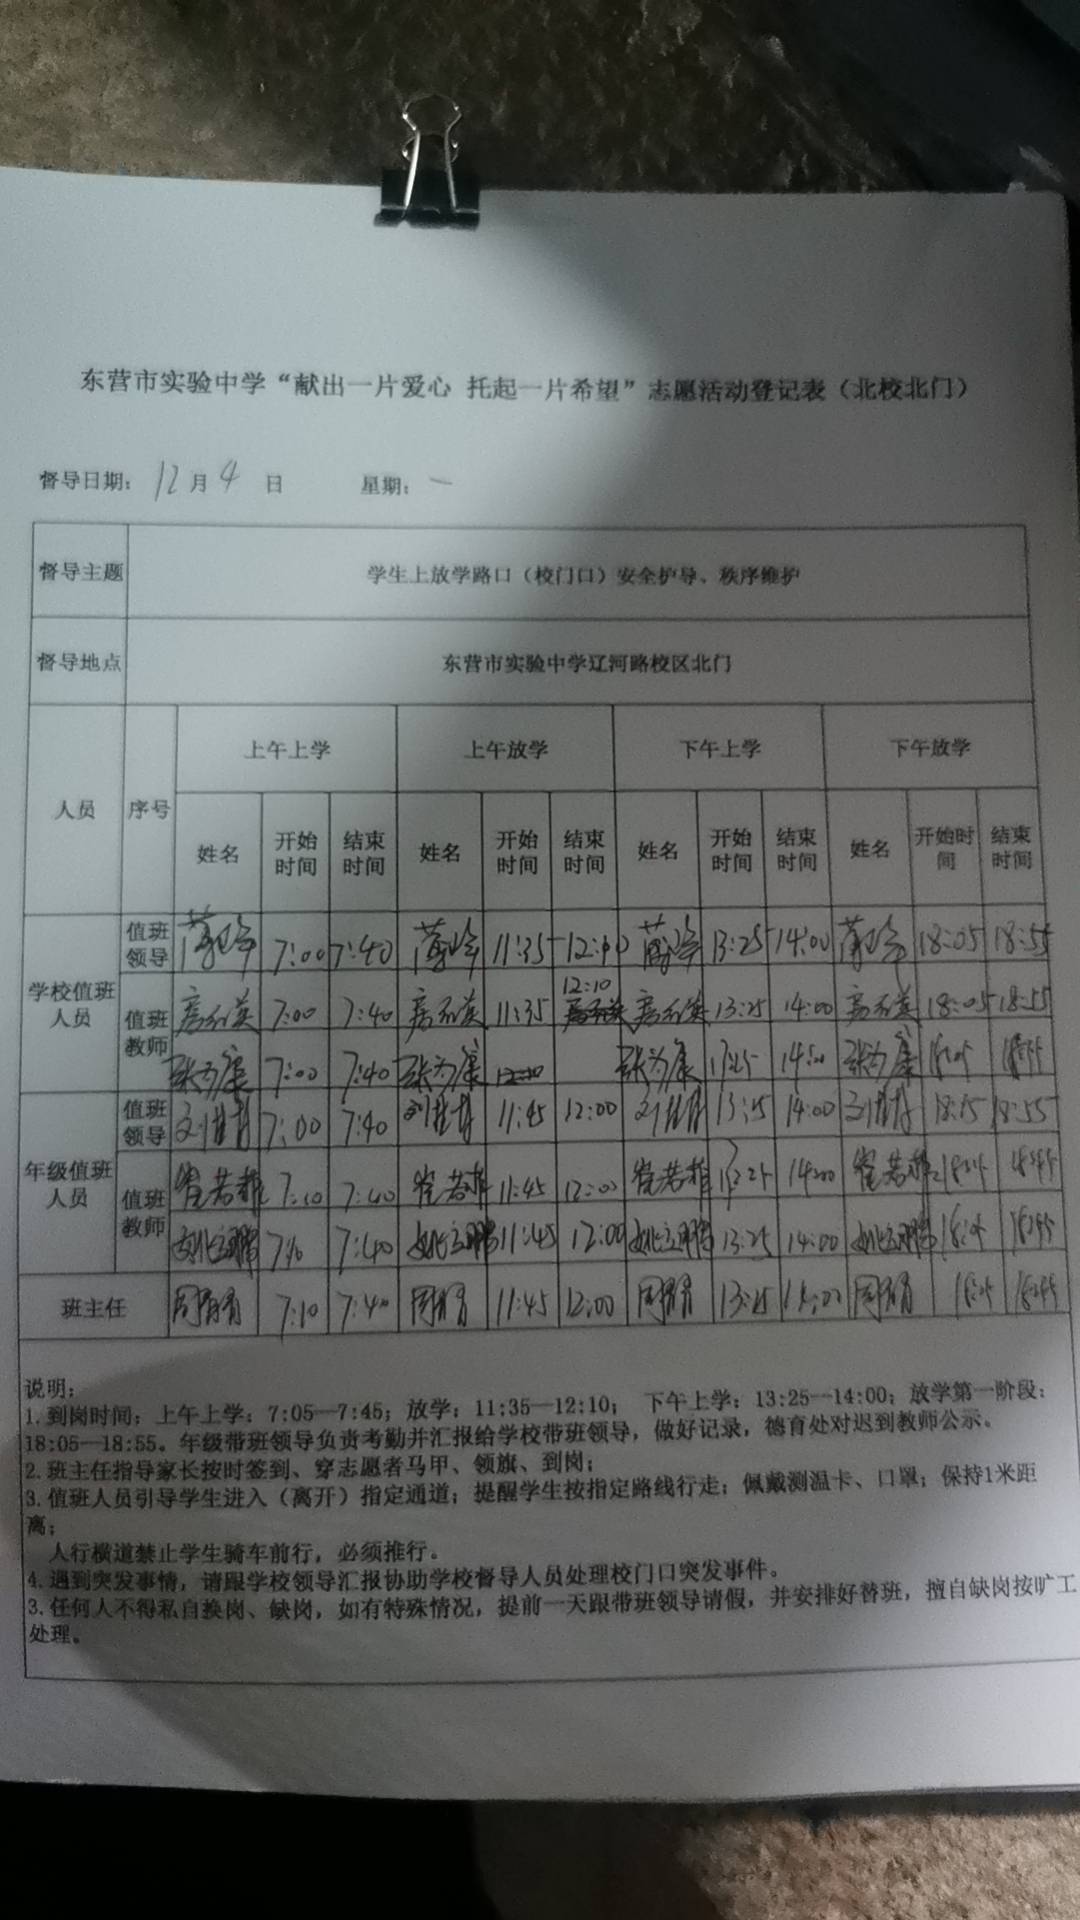 东营市实验中学“献出一片爱心 托起一片希望”志愿活动登记表（北校北门）
督导日期：12月4日 星期：一
督导主题 学生上放学路口（校门口）安全护导、秩序维护
督导地点 东营市实验中学辽河路校区北门
人员 序号 上午上学 上午放学 下午上学 下午放学
姓名 开始时间 结束时间 姓名 开始时间 结束时间 姓名 开始时间 结束时间 姓名 开始时间 结束时间
学校值班人员 值班领导 7:00 7:40 11:35 13:25 14:00 18:05 18:55
值班教师 7:00 7:40 11:35 12:10 13:25 14:00 18:05 18:55
张为广 7:00 7:40 张为广 12:10 张为广 张为广
年级值班人员 值班领导 7:00 7:40 11:45 12:00 14:00 18:55
值班教师 崔若菲 7:10 7:40 崔若菲 11:45 12:00 崔若菲 13:25 14:00 崔若菲
姚立鹏 7:10 7:40 姚立鹏 11:45 12:00 姚立鹏 13:25 14:00 姚立鹏
班主任 7:10 7:40 11:45 12:00
说明：
1.到岗时间；上午上学：7:05—7:45；放学；11:35—12:10； 下午上学：13:25—14:00；放学第一阶段：
18:05—18:55。年级带班领导负责考勤并汇报给学校带班领导，做好记录，德育处对迟到教师公示。
2.班主任指导家长按时签到、穿志愿者马甲、领旗、到岗；
3.值班人员引导学生进入（离开）指定通道；提醒学生按指定路线行走；佩戴测温卡、口罩；保持1米距
离；
人行横道禁止学生骑车前行，必须推行。
4.遇到突发事情，请跟学校领导汇报协助学校督导人员处理校门口突发事件。
3.任何人不得私自换岗、缺岗，如有特殊情况，提前一天跟带班领导请假，并安排好替班，擅自缺岗按旷工
处理。